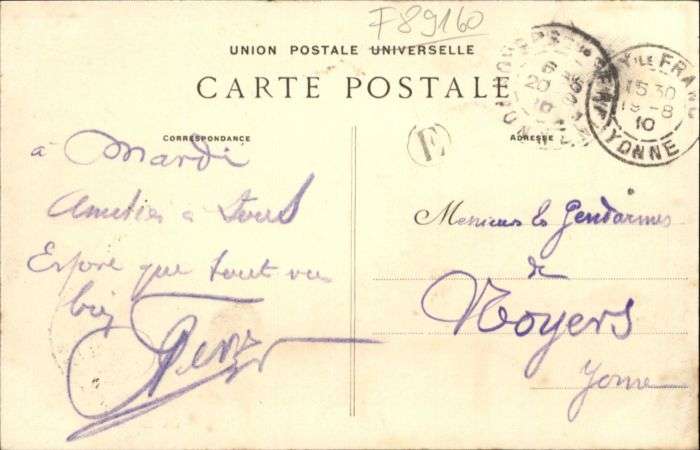 F89160
UNION POSTALE UNIVERSELLE
CARTE POSTALE
CORRESPONDANCE
ADRESSE
E
15 30
19 - 8
10
YONNE
à Mardi
Amitiés à Tous
Espère que tout va
bien
Messieurs les Gendarmes
de
Noyers
Yonne